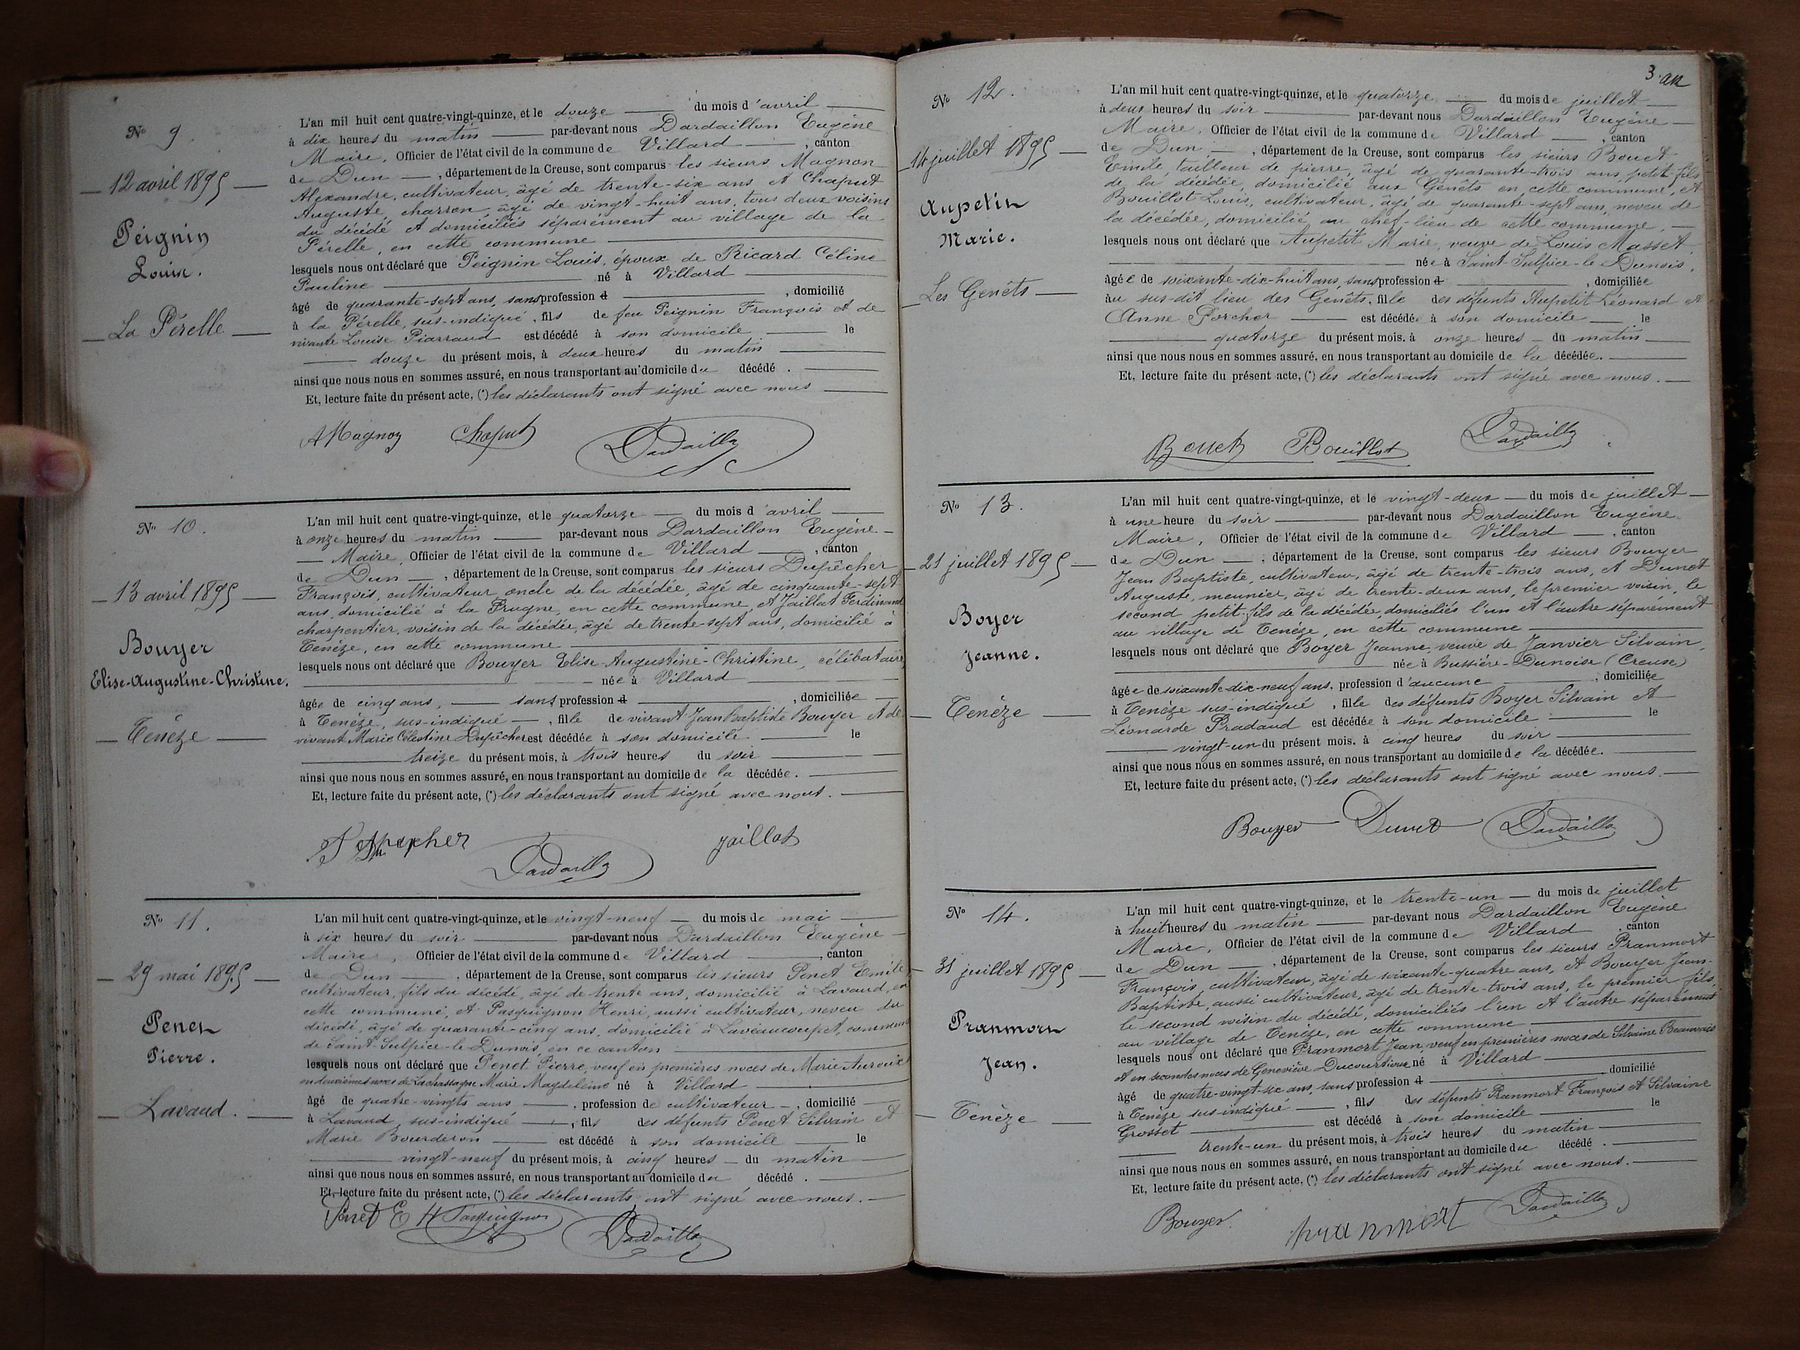 Nº 9.
12 avril 1895
Peignin
Louis.
La Pérelle
L'an mil huit cent quatre-vingt-quinze, et le douze du mois d'avril
à dix heures du matin par-devant nous Dardaillon Eugène
Maire, Officier de l'état civil de la commune de Villard, canton
de Dun, département de la Creuse, sont comparus les sieurs Magnon
Alexandre, cultivateur, âgé de trente-six ans et Chaput
Auguste, charron, âgé de vingt-huit ans, tous deux voisins
du décédé et domiciliés séparément au village de la
Pérelle, en cette commune
lesquels nous ont déclaré que Peignin Louis, époux de Ricard Céline
Pauline né à Villard
âgé de quarante-sept ans, sans profession d, domicilié
à la Pérelle, sus-indiqué, fils de feu Peignin François et de
vivante Louise Piarraud est décédé à son domicile le
douze du présent mois, à deux heures du matin
ainsi que nous nous en sommes assuré, en nous transportant au domicile du décédé.
Et, lecture faite du présent acte, (*) les déclarants ont signé avec nous
AMagnon Chaput Dardaillon
Nº 10.
13 avril 1895
Bouyer
Elise-Augustine-Christine.
Tenèze
L'an mil huit cent quatre-vingt-quinze, et le quatorze du mois d'avril
à onze heures du matin par-devant nous Dardaillon Eugène
Maire, Officier de l'état civil de la commune de Villard, canton
de Dun, département de la Creuse, sont comparus les sieurs Dupêcher
François, cultivateur, oncle de la décédée, âgé de cinquante-sept
ans, domicilié à la Prugne, en cette commune, et Jaillot Ferdinand
charpentier, voisin de la décédée, âgé de trente-sept ans, domicilié à
Tenèze, en cette commune
lesquels nous ont déclaré que Bouyer Elise Augustine-Christine, célibataire,
née à Villard
âgée de cinq ans, sans profession d, domiciliée
à Tenèze, sus-indiqué, fille de vivant Jean Baptiste Bouyer et de
vivant Marie Célestine Dupêcher est décédée à son domicile le
treize du présent mois, à trois heures du soir
ainsi que nous nous en sommes assuré, en nous transportant au domicile de la décédée.
Et, lecture faite du présent acte, (*) les déclarants ont signé avec nous.
Dardaillon jaillot
Nº 11.
29 mai 1895
Penet
Pierre.
Lavaud.
L'an mil huit cent quatre-vingt-quinze, et le vingt-neuf du mois de mai
à six heures du soir par-devant nous Dardaillon Eugène
Maire, Officier de l'état civil de la commune de Villard, canton
de Dun, département de la Creuse, sont comparus les sieurs Penet Emile
cultivateur, fils du décédé, âgé de trente ans, domicilié à Lavaud, en
cette commune, et Pasquignon Henri, aussi cultivateur, neveu du
décédé, âgé de quarante-cinq ans, domicilié à Laveaucoupet, commune
de Saint-Sulpice-le-Dunois, en ce canton
lesquels nous ont déclaré que Penet Pierre, veuf en premières noces de Marie
en deuxièmes noces de Lachassagne Marie Magdeleine né à Villard
âgé de quatre-vingts ans, profession de cultivateur, domicilié
à Lavaud, sus-indiqué, fils des défunts Penet Silvain et
Marie Bourderon est décédé à son domicile le
vingt-neuf du présent mois, à cinq heures du matin
ainsi que nous nous en sommes assuré, en nous transportant au domicile du décédé.
Et, lecture faite du présent acte, (*) les déclarants ont signé avec nous.
Penet E H Pasquignon Dardaillon
3
Nº 12.
14 juillet 1895
Aupetit
Marie.
Les Genêts
L'an mil huit cent quatre-vingt-quinze, et le quatorze du mois de juillet
à deux heures du soir par-devant nous Dardaillon Eugène
Maire, Officier de l'état civil de la commune de Villard, canton
de Dun, département de la Creuse, sont comparus les sieurs Bouet
Emile, tailleur de pierre, âgé de quarante-trois ans, petit-fils
de la décédée, domicilié aux Genêts en cette commune, et
Bouillot Louis, cultivateur, âgé de quarante-sept ans, neveu de
la décédée, domicilié au chef-lieu de cette commune,
lesquels nous ont déclaré que Aupetit Marie, veuve de Louis Masset
née à Saint Sulpice-le-Dunois,
âgée de soixante-dix-huit ans, sans profession d, domiciliée
au sus-dit lieu des Genêts, fille des défunts Aupetit Léonard et
Anne Porcher est décédée à son domicile le
quatorze du présent mois, à onze heures du matin
ainsi que nous nous en sommes assuré, en nous transportant au domicile de la décédée.
Et, lecture faite du présent acte, (*) les déclarants ont signé avec nous.
Bouet Bouillot Dardaillon
Nº 13.
21 juillet 1895
Boyer
Jeanne.
Tenèze
L'an mil huit cent quatre-vingt-quinze, et le vingt-deux du mois de juillet
à une heure du soir par-devant nous Dardaillon Eugène
Maire, Officier de l'état civil de la commune de Villard, canton
de Dun, département de la Creuse, sont comparus les sieurs Bouyer
Jean Baptiste, cultivateur, âgé de trente-trois ans, et Dunet
Auguste, meunier, âgé de trente-deux ans, le premier voisin, le
second petit-fils de la décédée, domiciliés l'un et l'autre séparément
au village de Tenèze, en cette commune
lesquels nous ont déclaré que Boyer Jeanne veuve de Janvier Silvain,
née à Bussière-Dunoise (Creuse)
âgée de soixante-dix-neuf ans, profession d'aucune, domiciliée
à Tenèze sus-indiqué, fille des défunts Boyer Silvain et
Léonarde Pradaud est décédée à son domicile le
vingt-un du présent mois, à cinq heures du soir
ainsi que nous nous en sommes assuré, en nous transportant au domicile de la décédée.
Et, lecture faite du présent acte, (*) les déclarants ont signé avec nous.
Bouyer Dunet Dardaillon
Nº 14.
31 juillet 1895
Pranmort
Jean.
Tenèze
L'an mil huit cent quatre-vingt-quinze, et le trente-un du mois de juillet
à huit heures du matin par-devant nous Dardaillon Eugène
Maire, Officier de l'état civil de la commune de Villard, canton
de Dun, département de la Creuse, sont comparus les sieurs Pranmort
François, cultivateur, âgé de soixante-quatre ans, et Bouyer Jean-
Baptiste, aussi cultivateur, âgé de trente-trois ans, le premier fils,
le second voisin du décédé, domiciliés l'un et l'autre séparément
au village de Tenèze, en cette commune
lesquels nous ont déclaré que Pranmort Jean, veuf en premières noces de Silvaine Beauvais
et en secondes noces de Geneviève Ducourtioux né à Villard
âgé de quatre-vingt-six ans, sans profession d, domicilié
à Tenèze sus-indiqué, fils des défunts Pranmort François et Silvaine
Grosset est décédé à son domicile le
trente-un du présent mois, à trois heures du matin
ainsi que nous nous en sommes assuré, en nous transportant au domicile du décédé.
Et, lecture faite du présent acte, (*) les déclarants ont signé avec nous.
Bouyer pranmort Dardaillon